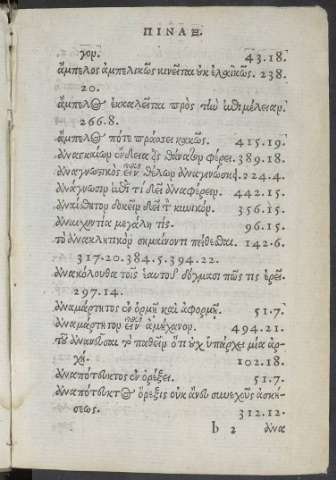 ΠΙΝΑΞ.
γον. 43.18.
ἄμπελος ἀμπελικῶς κινεῖται οὐκ ἐλαϊκῶς. 238.
20.
ἄμπελος ἐκκαλεῖται πρὸς τὴν ἐπιμέλειαν.
266.8.
ἄμπελος πότε πράσσει κακῶς. 415.19.
389.18.
ἀναγνωστικὸς εἶναι θέλων ἀναγίνωσκε. 224.4.
ἀνάγνωσιν ἐπὶ τί δεῖ ἀναφέρειν. 442.15.
ἀναίσθητον δοκεῖν δεῖ τ κυνικόν. 356.15.
μεγάλη τίς. 96.15.
τὸ ἀνακλητικὸν σημαίνοντι πείθεσθαι. 142.6.
317.20.384.5.394.22.
ἀνακόλουθα τοῖς ἑαυτοῦ δόγμασι πῶς τις ἐρεῖ.
297.14.
ἀναμάρτητος ἐν ὁρμῇ καὶ ἀφορμῇ. 51.7.
ἀναμάρτητον εἶναι ἀμήχανον. 494.21.
τοῦ ἀνανεῦσαι τὸ παθεῖν ὅτι οὐχ ὑπάρχει μία ἀρ-
χή. 102.18.
ἀναπότευκτος ἐν ὀρέξει. 51.7.
ἀναπότευκτος ὄρεξις οὐκ ἄνευ συνεχοῦς ἀσκή-
σεως. 312.12.
b 2 ἀνα